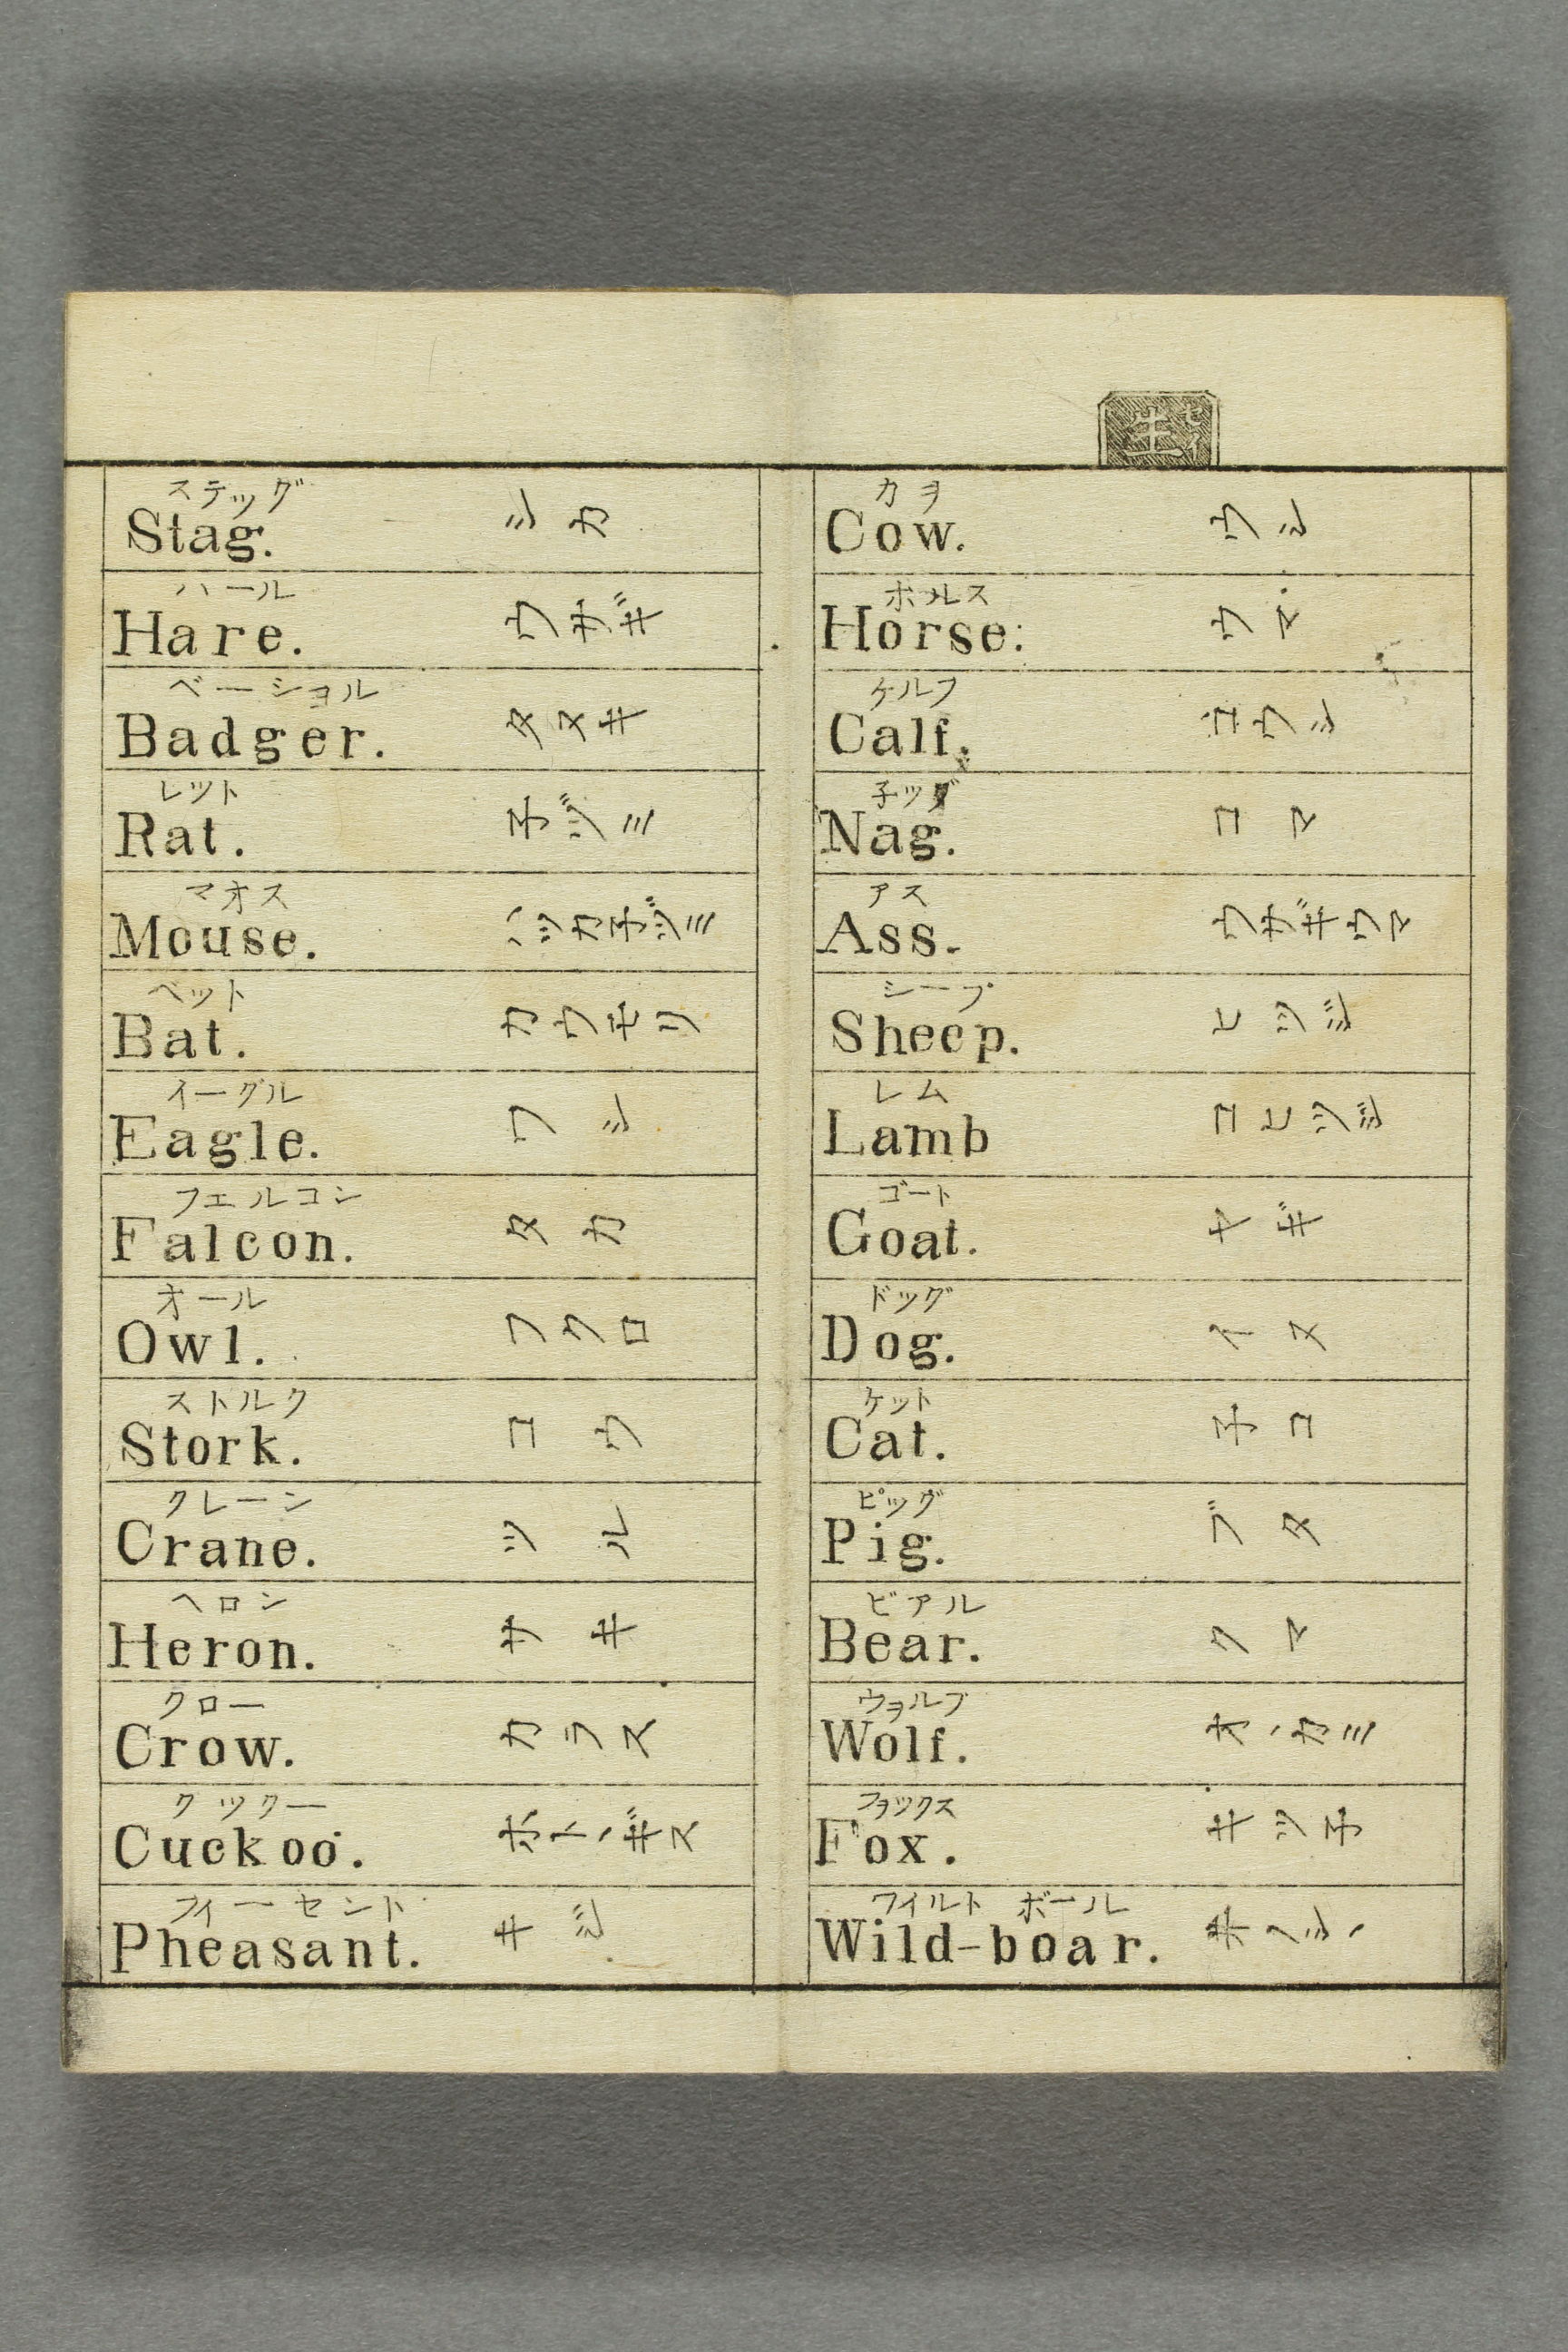 セイ
生
カヲ
Cow. ウシ
ホルス
Horse. ウマ
ケルフ
Calf. コウシ
子ッグ
Nag. コマ
アス
Ass. ウサギウマ
シープ
Sheep. ヒツジ
レム
Lamb コヒツジ
ゴート
Goat. ヤギ
ドッグ
Dog. イヌ
ケット
Cat. 子コ
ピッグ
Pig. ブタ
ビアル
Bear. クマ
ウヲルブ
Wolf. オヽカミ
フヲックス
Fox. キツ子
ワイルト ボール
Wild-boar. ヰノシヽ
ステッグ
Stag. シカ
ハール
Hare. ウサギ
ベーショル
Badger. タヌキ
レット
Rat. 子ヅミ
マオス
Mouse. ハツカ子ヅミ
ベット
Bat. カウモリ
イーグル
Eagle. ワシ
フエルコン
Falcon. タカ
オール
Owl. フクロ
ストルク
Stork. コウ
クレーン
Crane. ツル
ヘロン
Heron. サキ
クロー
Crow. カラス
クックー
Cuckoo. ホトヽギス
フィーセント
Pheasant. キジ